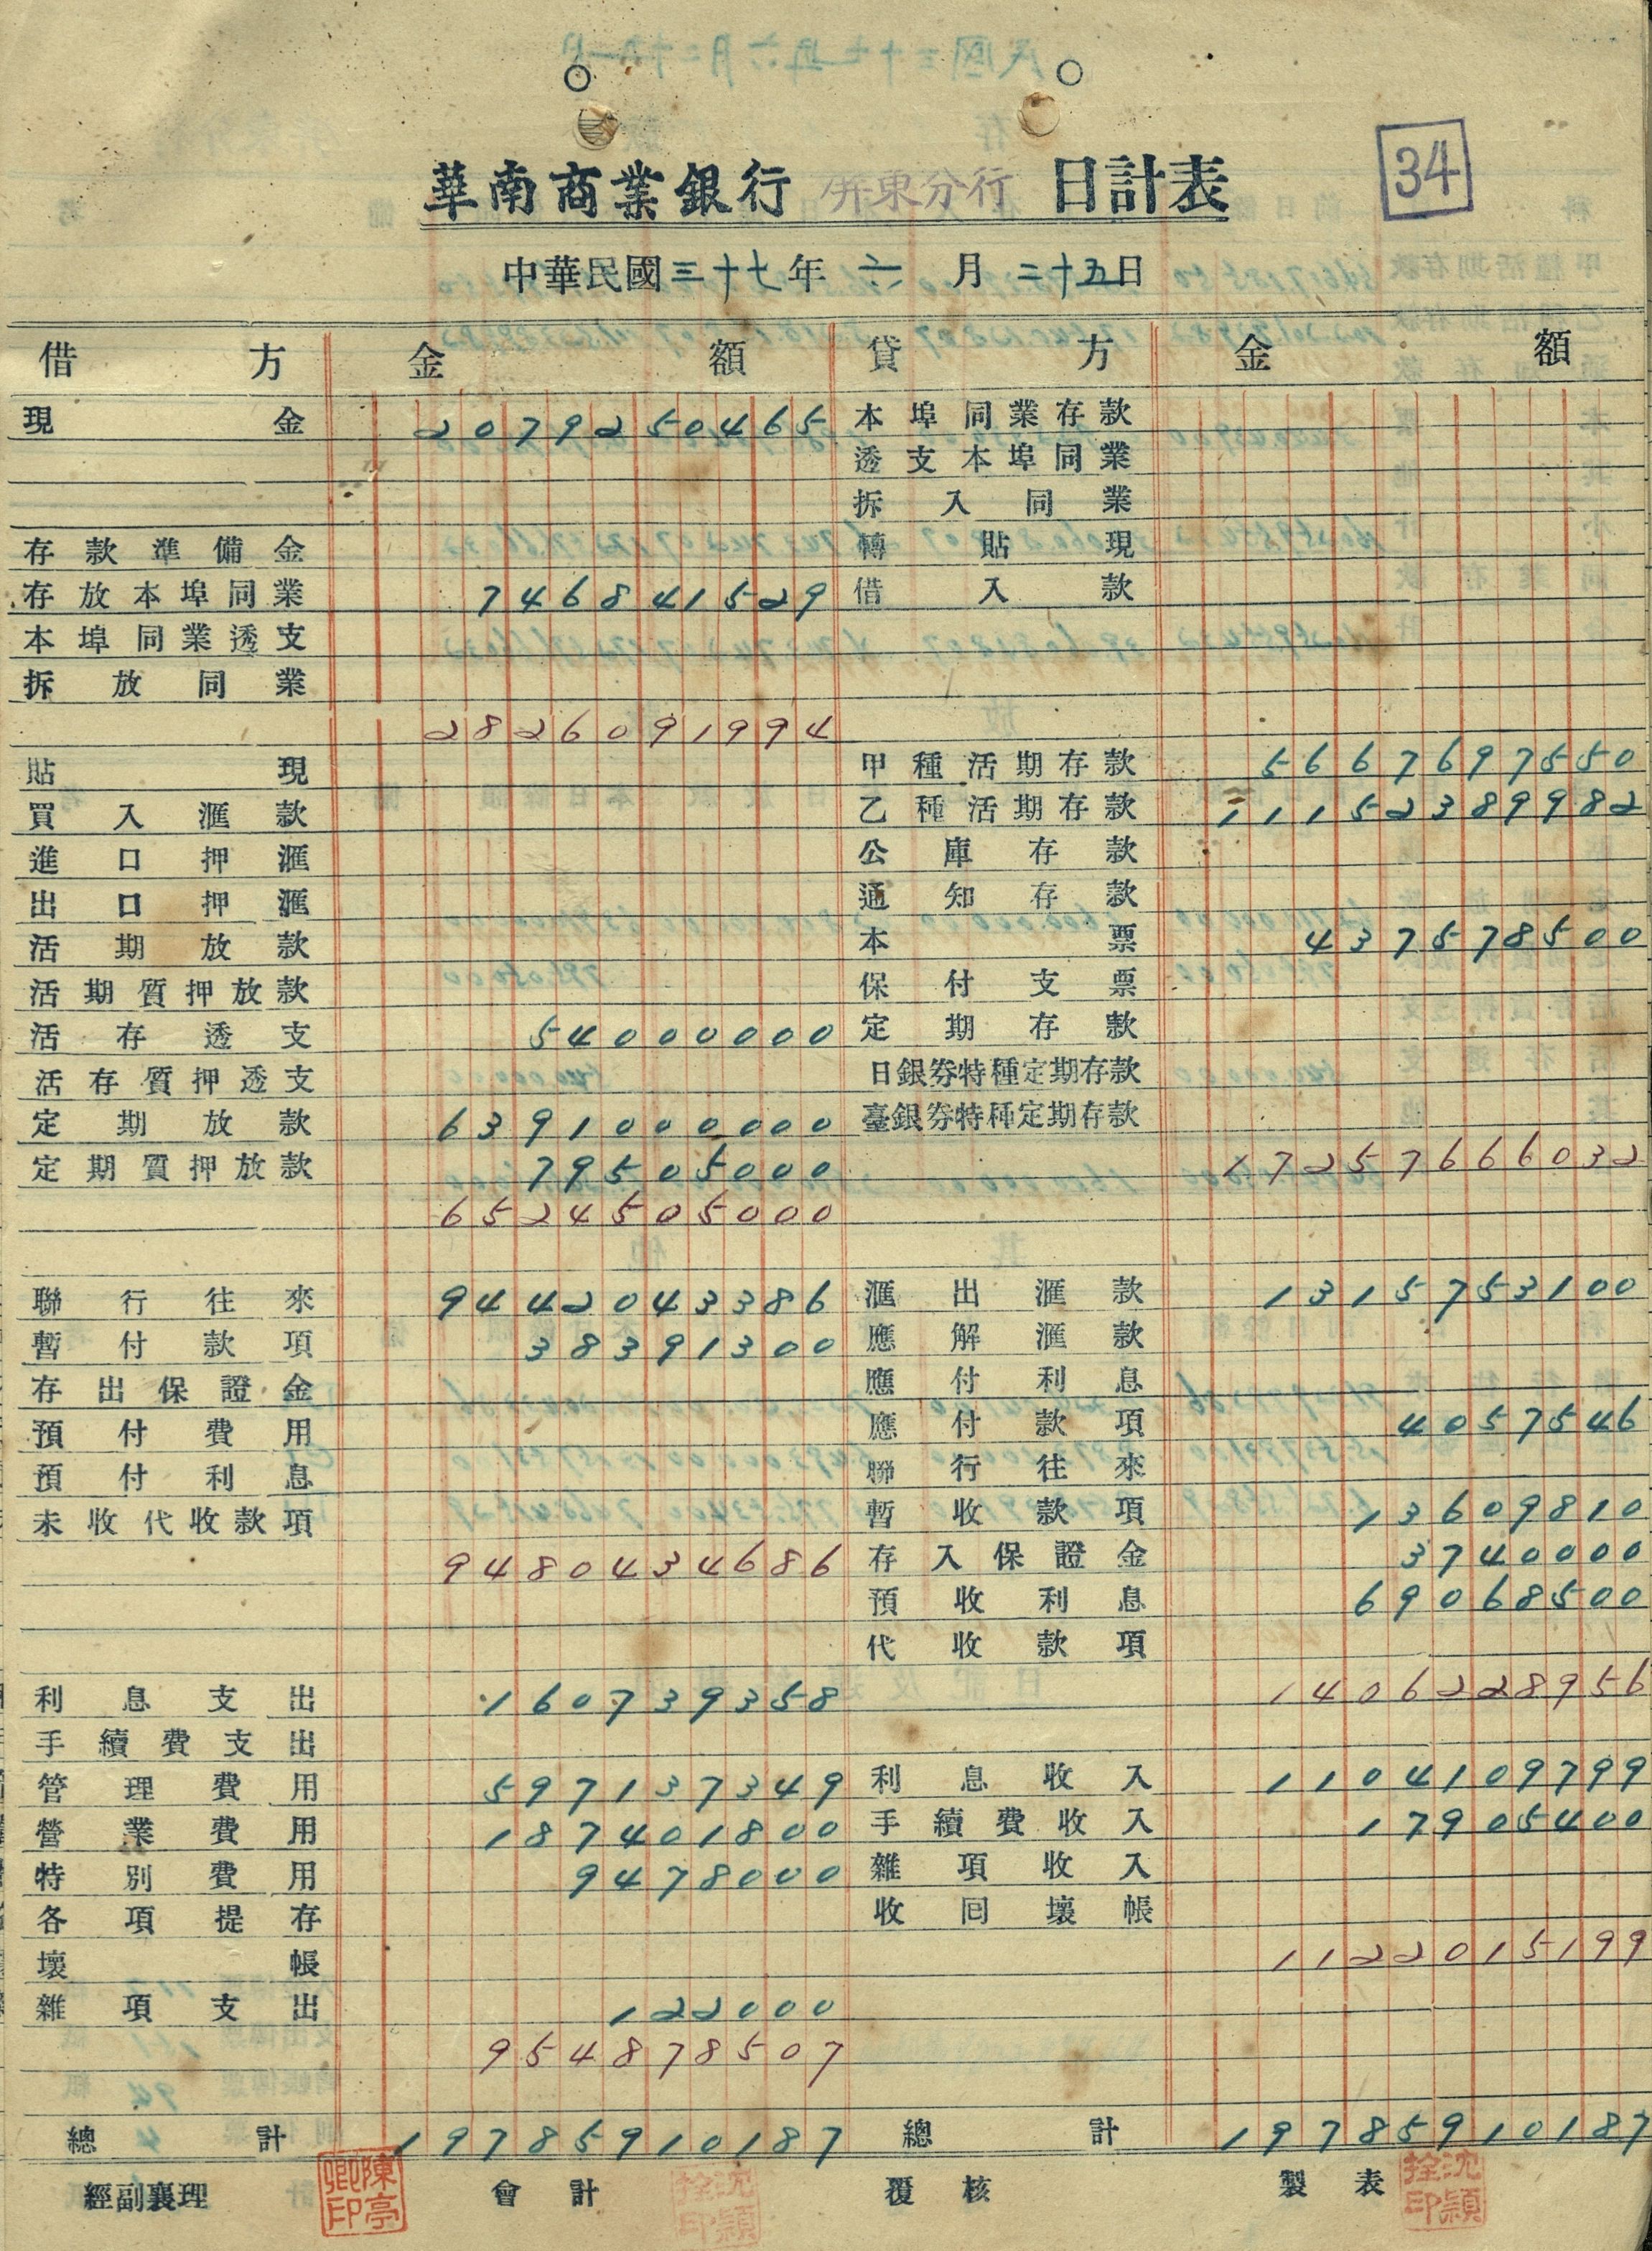 34
華南商業銀行 屏東分行 日計表
中華民國三十七年六月二十五日
借方 金額 貸方 金額
現金 2079250465 本埠同業存款
透支本埠同業
拆入同業
存款準備金 轉貼現
存放本埠同業 746841529 借入款
本埠同業透支
拆放同業
2826091994
貼現 甲種活期存款 5667697550
買入滙款 乙種活期存款 11152389982
進口押滙 公庫存款
出口押滙 通知存款
活期放款 本票 437578500
活期質押放款 保付支票
活存透支 54000000 定期存款
活存質押透支 日銀券特種定期存款
定期放款 6391000000 臺銀券特種定期存款
定期質押放款 79505000 17257666032
6524505000
聯行往來 9442043386 滙出滙款 1315753100
暫付款項 38391300 應解滙款
存出保證金 應付利息
預付費用 應付款項 4057546
預付利息 聯行往來
未收代收款項 暫收款項 13609810
9480434686 存入保證金 3740000
預收利息 69068500
代收款項
利息支出 160739358 1406228956
手續費支出
管理費用 597137349 利息收入 1104109799
營業費用 187401800 手續費收入 17905400
特別費用 9478000 雜項收入
各項提存 收回壞帳
壞帳 1122015199
雜項支出 122000
954878507
總計 19785910187 總計 19785910187
經副襄理 陳亭卿印 會計 沈頴拴印 覆核 製表 沈頴拴印